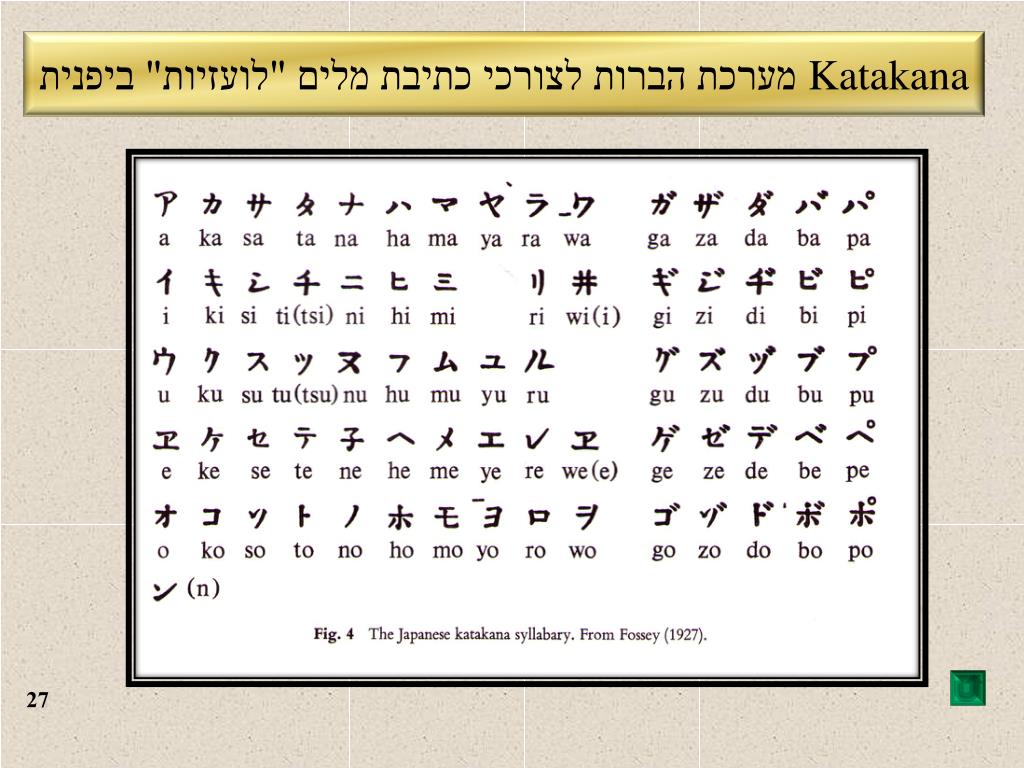 Katakana מערכת הברות לצורכי כתיבת מלים "לועזיות" ביפנית
ア カ サ タ ナ ハ マ ヤ ラ ワ ガ ザ ダ バ パ
a ka sa ta na ha ma ya ra wa ga za da ba pa
イ キ シ チ ニ ヒ ミ リ 井 ギ ジ ヂ ビ ピ
i ki si ti(tsi) ni hi mi ri wi(i) gi zi di bi pi
ウ ク ス ツ ヌ フ ム ユ ル グ ズ ヅ ブ プ
u ku su tu(tsu) nu hu mu yu ru gu zu du bu pu
ヱ ケ セ テ 子 ヘ メ エ レ ヱ ゲ ゼ デ ベ ペ
e ke se te ne he me ye re we(e) ge ze de be pe
オ コ ソ ト ノ ホ モ ヨ ロ ヲ ゴ ゾ ド ボ ポ
o ko so to no ho mo yo ro wo go zo do bo po
ン (n)
Fig. 4 The Japanese katakana syllabary. From Fossey (1927).
27